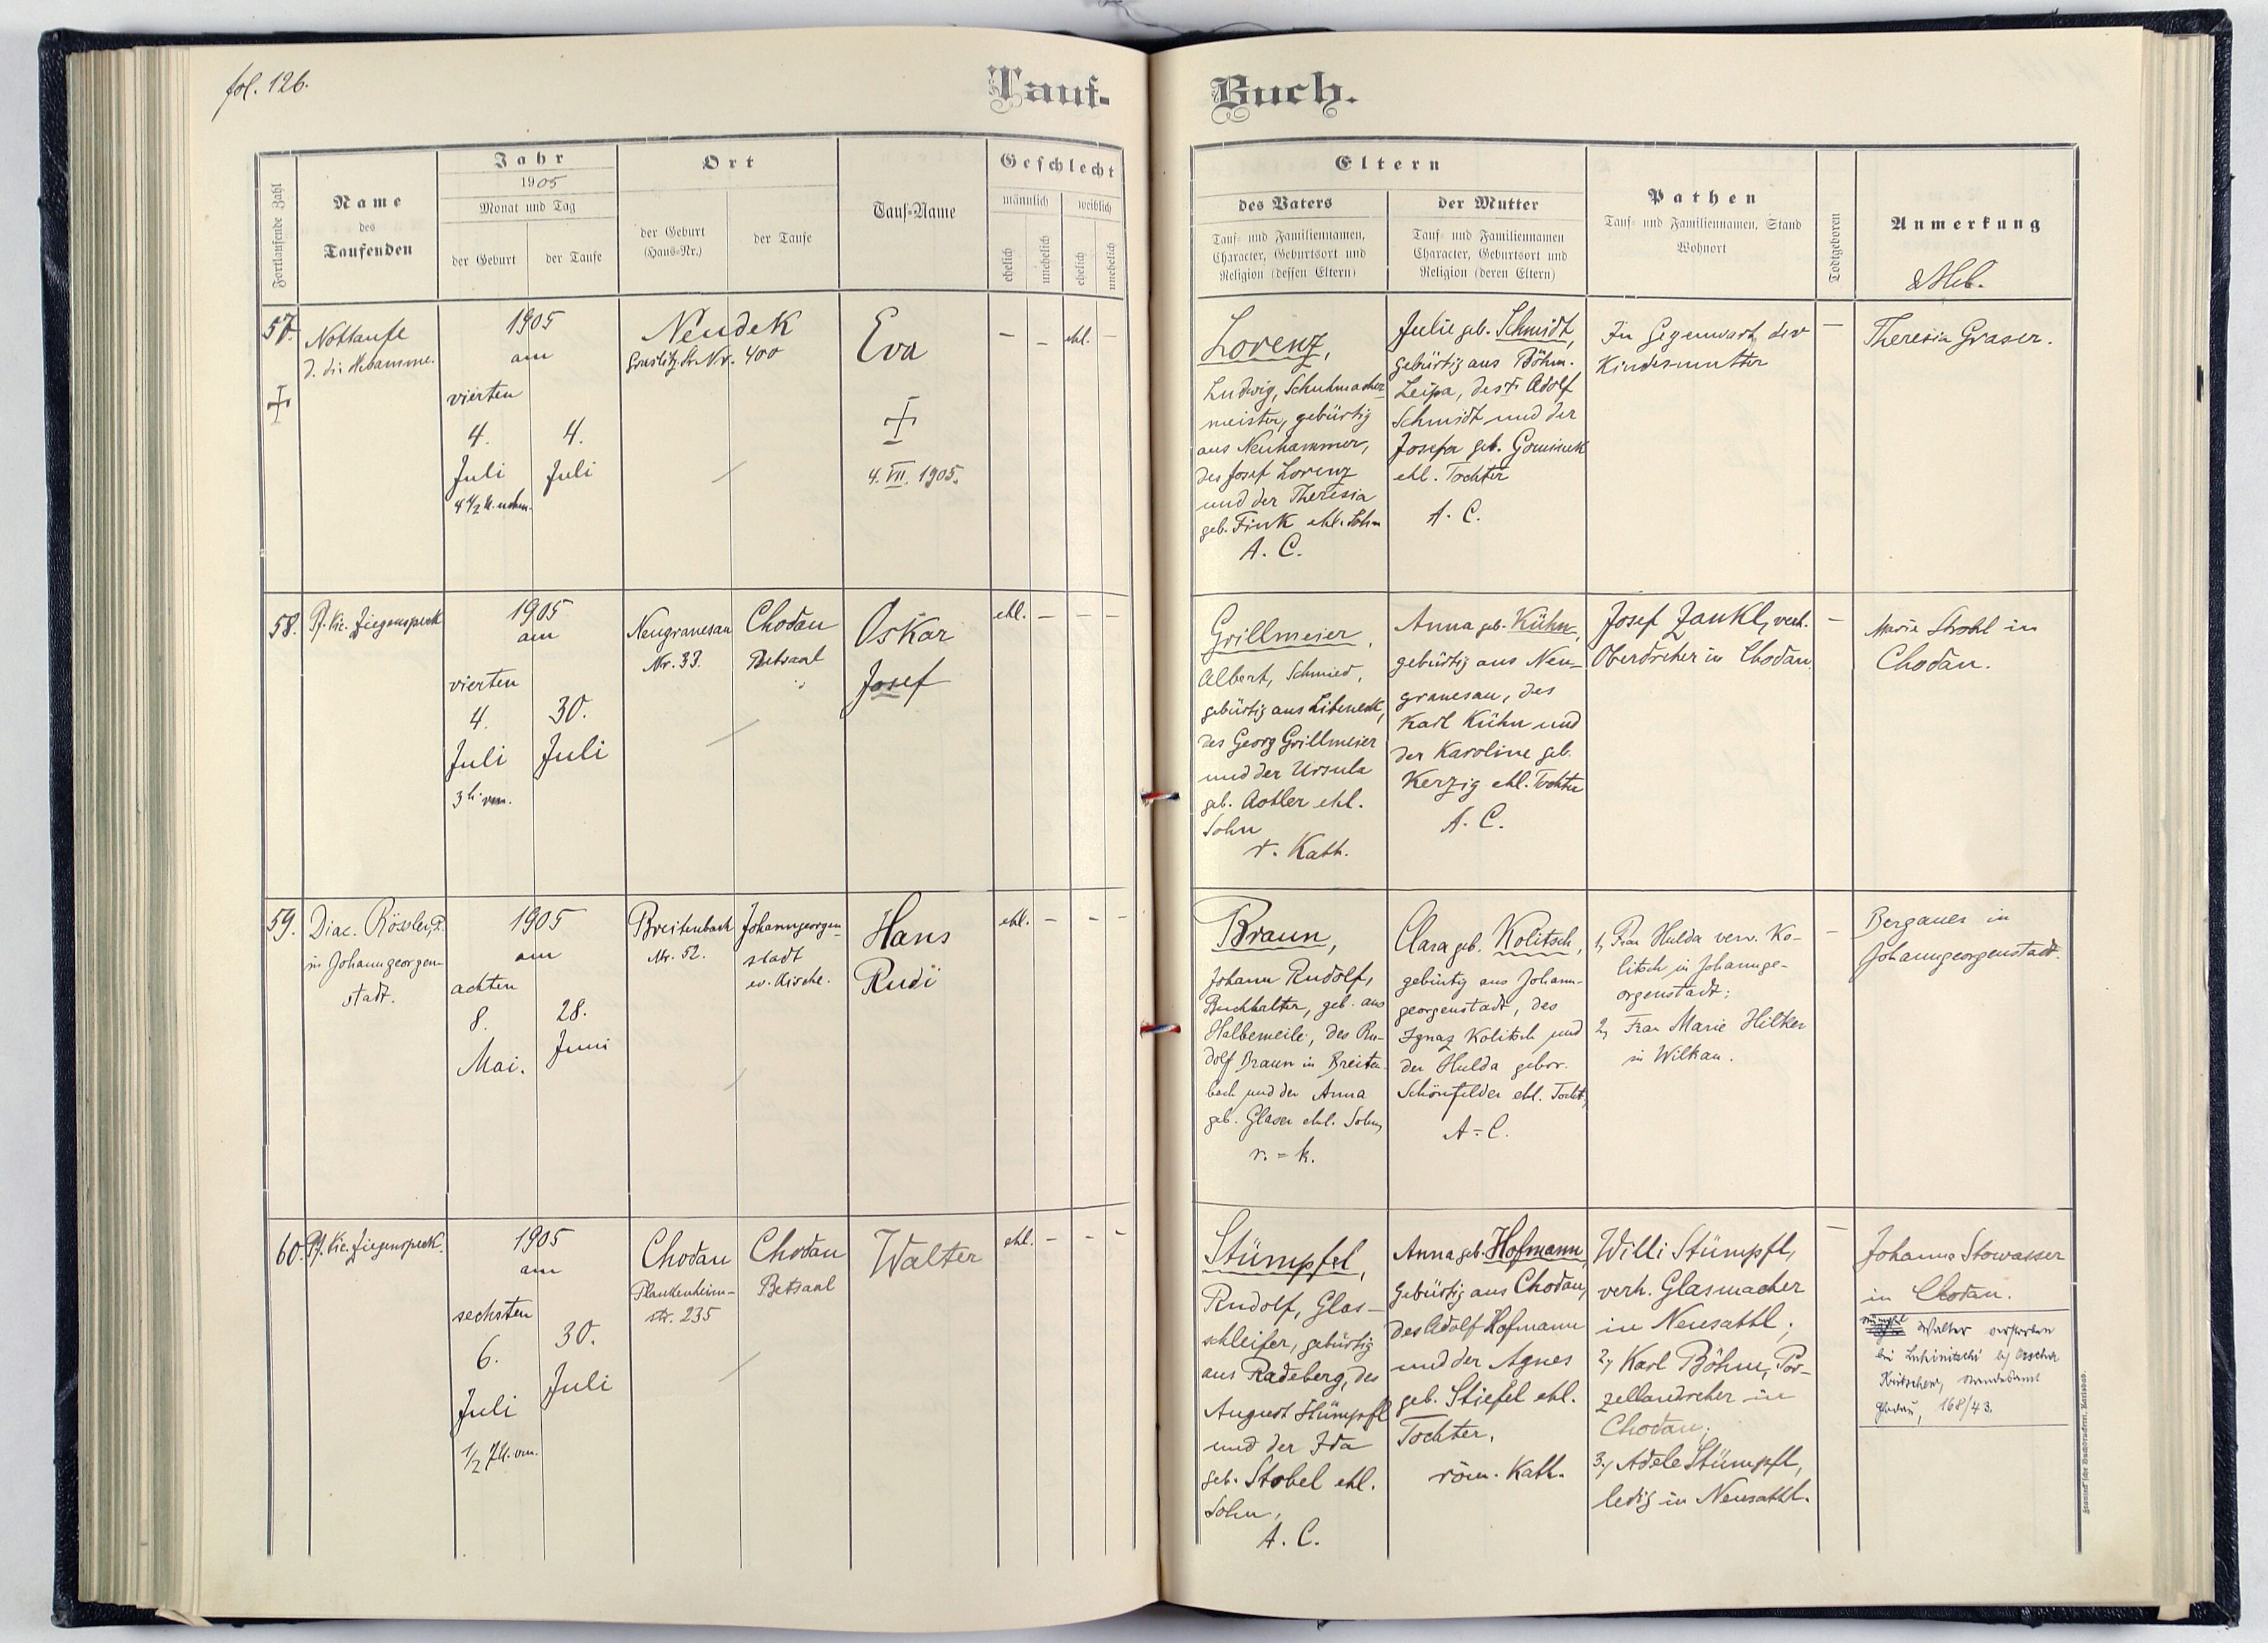 fol. 126.
Tauf-
Buch.
Fortlaufende Zahl
Name
des
Taufenden
Jahr
1905
Monat und Tag
der Geburt
der Taufe
Ort
der Geburt
(Haus-Nr.)
der Taufe
Tauf-Name
Geschlecht
männlich
weiblich
ehelich
unehelich
ehelich
unehelich
Eltern
des Vaters
Tauf- und Familiennamen,
Character, Geburtsort und
Religion (dessen Eltern)
der Mutter
Tauf- und Familiennamen
Character, Geburtsort und
Religion (deren Eltern)
Pathen
Tauf- und Familiennamen, Stand
Wohnort
Todtgeboren
Anmerkung
& Heb.
57.
Nottaufe
d. die Hebamme.
1905
am
vierten
4.
Juli
4 1/2 U. nchm.
4.
Juli
Neudek
Graslitz. Str. Nr. 400
Eva
4. VII. 1905.
–
–
ehl.
–
Lorenz,
Ludwig, Schuhmacher-
meister, gebürtig
aus Neuhammer,
des Josef Lorenz
und der Theresia
geb. Fink ehl. Sohn
A. C.
Julie geb. Schmidt,
gebürtig aus Böhm.
Leipa, des † Adolf
Schmidt und der
Josefa geb.
ehl. Tochter
A. C.
In Gegenwart der
Kindesmutter
–
Theresia Graser.
58.
Pf. Lic. Ziegenspeck
1905
am
vierten
4.
Juli
3 h. vm.
30.
Juli
Neugranesau
Nr. 33.
Chodau
Betsaal
Oskar
Josef
ehl.
–
–
–
Grillmeier,
Albert, Schmied,
gebürtig aus
des Georg Grillmeier
und der Ursula
geb. ehl.
Sohn
r. Kath.
Anna geb. Kühn,
gebürtig aus Neu-
granesau, des
Karl Kühn und
der Karoline geb.
Kerzig ehl. Tochter
A. C.
Josef Zankl, verh.
Oberdreher in Chodau.
–
Marie Strobl in
Chodau.
59.
Diac. Rössler,
in Johanngeorgen-
stadt.
1905
am
achten
8.
Mai.
28.
Juni
Breitenbach
Nr. 52.
Johanngeorgen-
stadt
ev. Kirche.
Hans
Rudi
ehl.
–
–
–
Braun,
Johann Rudolf,
Buchhalter, geb. aus
Halbemeile, des Ru-
dolf Braun in Breiten-
bach und der Anna
geb. Glaser ehl. Sohn,
r. = k.
Clara geb. Kolitsch,
gebürtig aus Johann-
georgenstadt, des
Ignaz Kolitsch und
der Hulda gebor.
Schönfelder ehl. Tocht.,
A = C.
1, Frau Hulda verw. Ko-
litsch in Johannge-
orgenstadt;
2, Frau Marie Hilker
in Wilkau.
–
Bergauer in
Johanngeorgenstadt.
60.
Pf. Lic. Ziegenspeck.
1905
am
sechsten
6.
Juli
1/2 7 U. vm.
30.
Juli
Chodau
Plankenheim-
str. 235
Chodau
Betsaal
Walter
ehl.
–
–
–
Stümpfel,
Rudolf, Glas-
schleifer, gebürtig
aus Radeberg, des
August Stümpfl
und der Ida
geb. Stobel ehl.
Sohn,
A. C.
Anna geb. Hofmann,
Gebürtig aus Chodau,
des Adolf Hofmann
und der Agnes
geb. Stiefel ehl.
Tochter.
röm. Kath.
Willi Stümpfl,
verh. Glasmacher
in Neusattl;
2, Karl Böhm, Por-
zellandreher in
Chodau;
3, Adele Stümpfl,
ledig in Neusattl.
–
Johanna Stowasser
in Chodau.
Walter verstorben
bei
Standesamt
Chodau, 168/43.